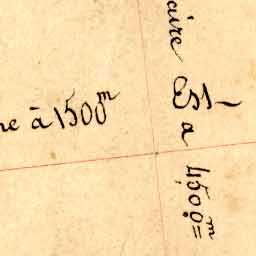 ne à 1500m
aire Est
a 4500m